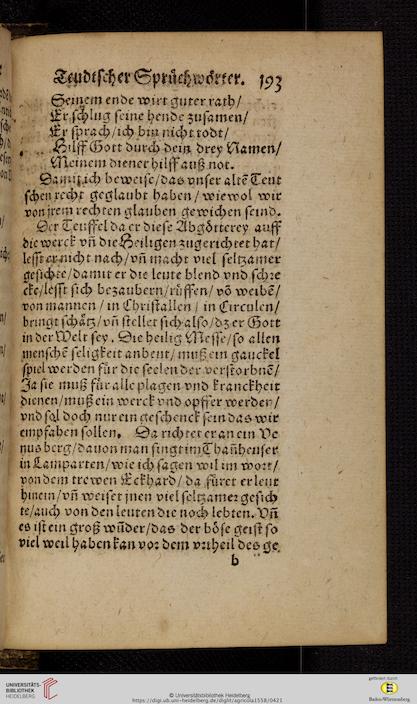 Teudtscher Sprüchwörter. 193
Seinem ende wirt guter rath/
Er schlug seine hende zusamen/
Er sprach/ich bin nicht todt/
Hilff Gott durch dein drey Namen/
Meinem diener hilff auß not.
Damit ich beweise/das vnser altē Teut
schen recht geglaubt haben/wiewol wir
von jrem rechten glauben gewichen seind.
Der Teuffel da er diese Abgötterey auff
die werck vñ die Heiligen zugerichtet hat/
lesst er nicht nach/vñ macht viel seltzamer
gesichte/damit er die leute blend vnd schre
cke/lesst sich bezaubern/rüffen/vō weibē/
von mannen/in Christallen/in Circulen/
bringt schätz/vñ stellet sich also/dz er Gott
in der Welt sey. Die heilig Messe/so allen
menschē seligkeit anbeut/muß ein gauckel
spiel werden für die seelen der verstorbnē/
Ja sie muß für alle plagen vnd kranckheit
dienen/muß ein werck vnd opffer werden/
vnd sol doch nur ein geschenck sein das wir
empfahen sollen. Da richtet er an ein Ve
nus berg/dauon man singt im Thañhenser
in Lamparten/wie ich sagen wil im wort/
von dem trewen Eckhard/da füret er leut
hinein/vñ weiset jnen viel seltzamer gesich
te/auch von den leuten die noch lebten. Vñ
es ist ein groß wūder/das der böse geist so
viel weil haben kan vor dem vrtheil des ge
b
UNIVERSITÄTS-
BIBLIOTHEK
HEIDELBERG
© Universitätsbibliothek Heidelberg
https://digi.ub.uni-heidelberg.de/diglit/agricola1558/0421
gefördert durch
Baden-Württemberg